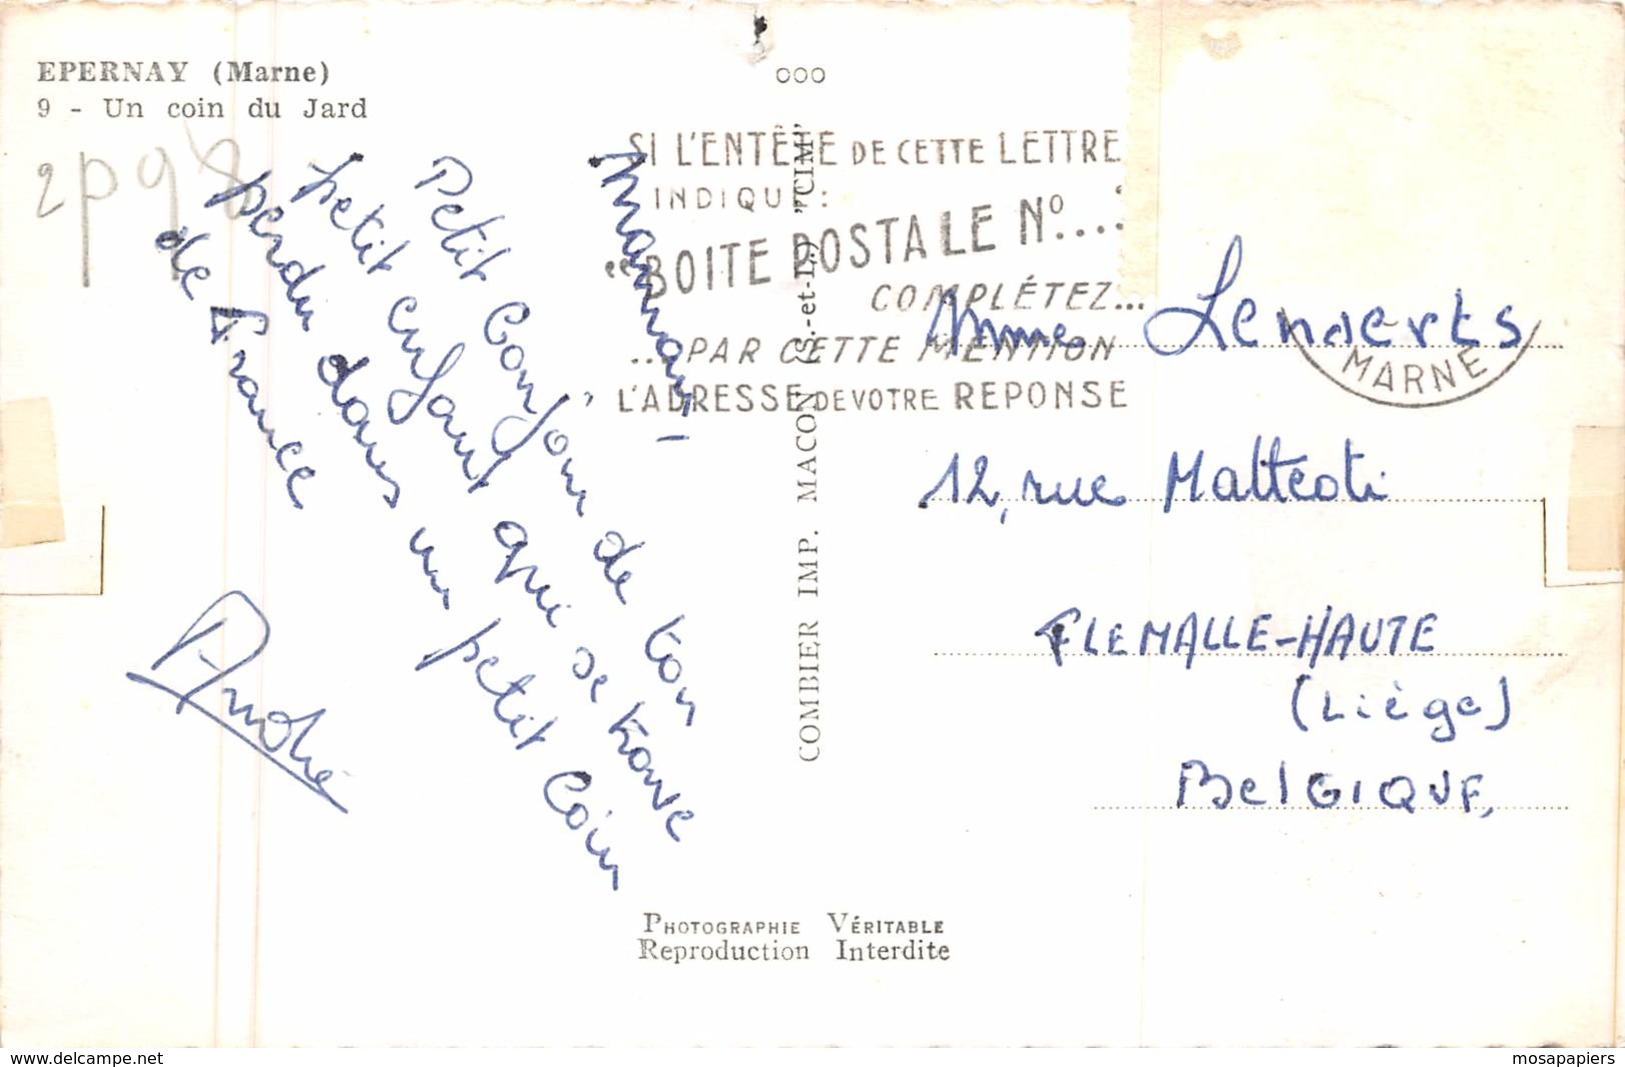 EPERNAY (Marne)
9 - Un coin du Jard
2p98
Maman,
Petit bonjour de ton
petit enfant qui se trouve
perdu dans un petit coin
de France
André
COMBIER IMP. MACON (S.-et-L.) "CIM"
SI L'ENTÊTE DE CETTE LETTRE
INDIQUE :
"BOITE POSTALE Nº...
COMPLÉTEZ...
...PAR CETTE MENTION
L'ADRESSE DE VOTRE REPONSE
MARNE
Mme Lenaerts
12, rue Matteoti
FLEMALLE-HAUTE
(Liège)
BELGIQUE,
PHOTOGRAPHIE VÉRITABLE
Reproduction Interdite
www.delcampe.net
mosapapiers